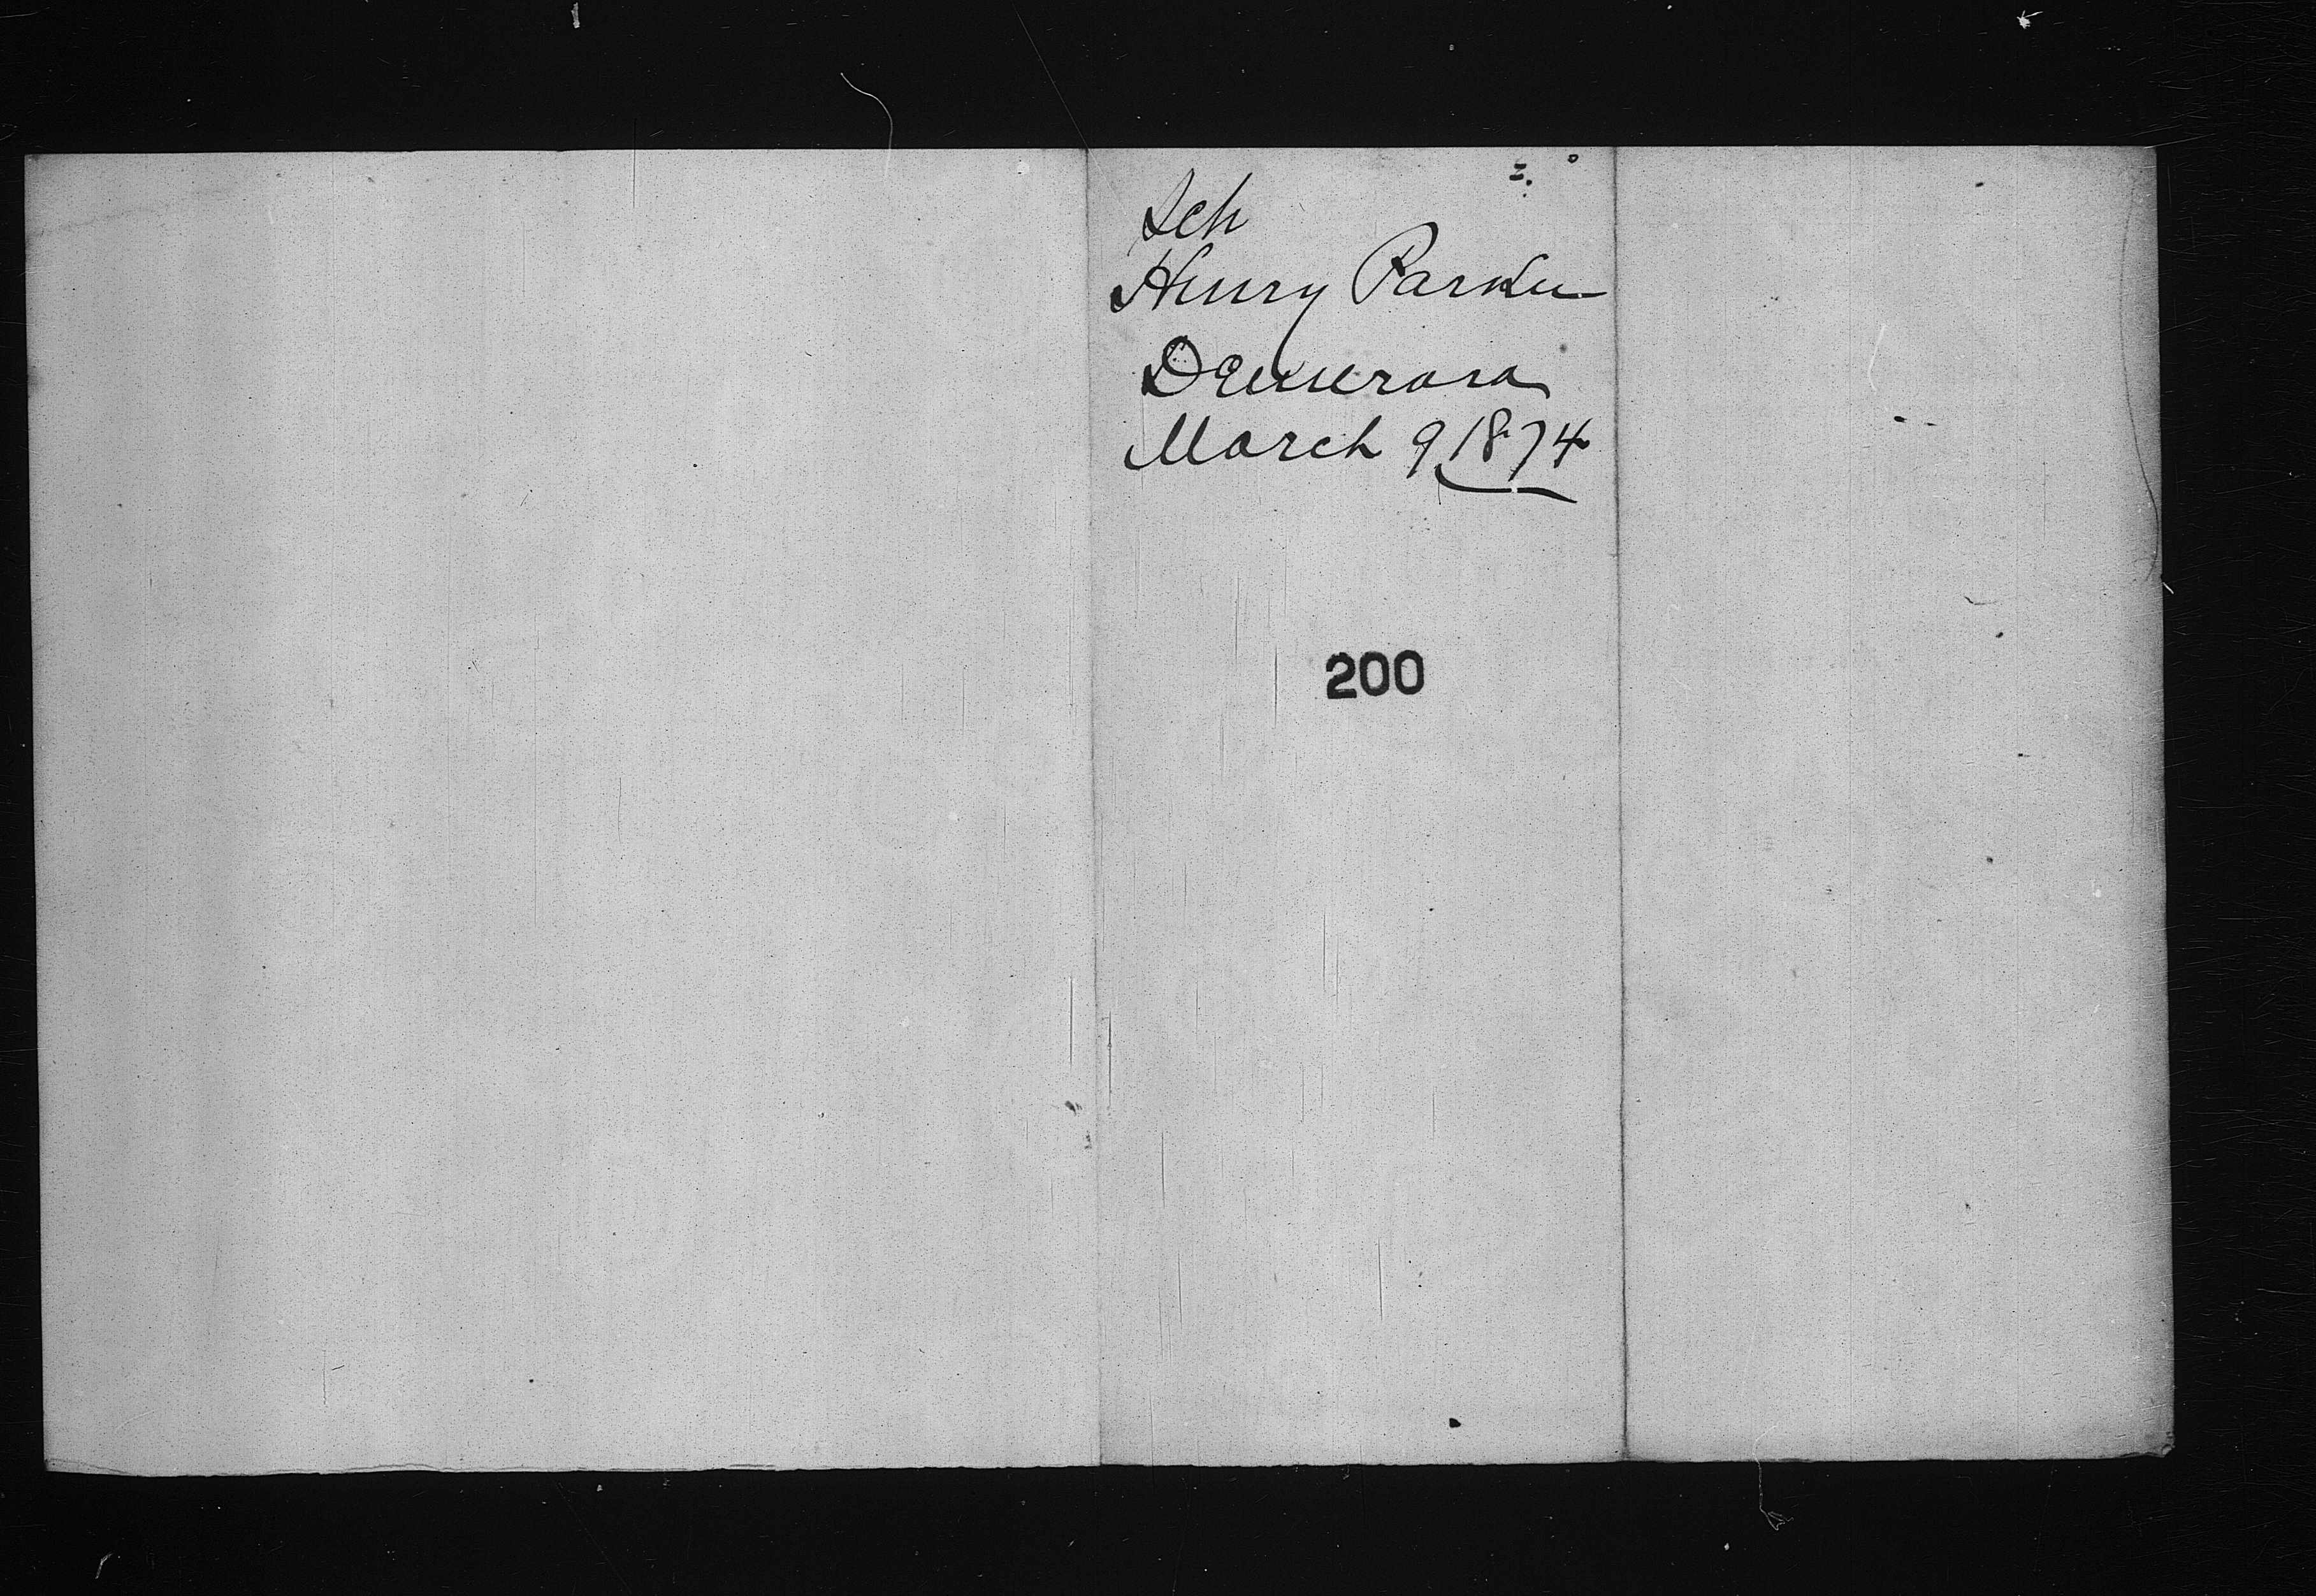 Sch
Henry Parker
Demerara
March 9 1874
200